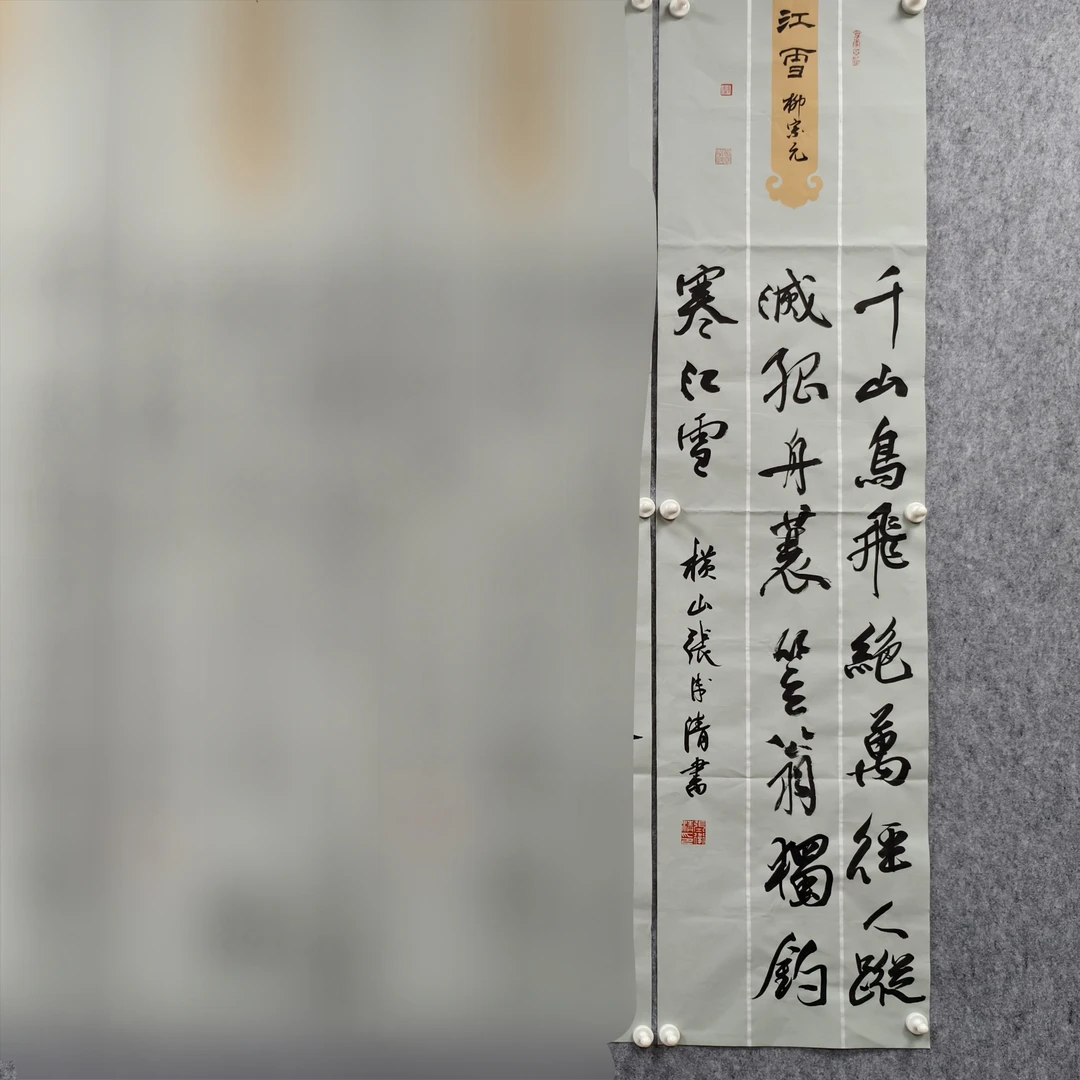 江雪
柳宗元
千山鳥飛絶萬徑人蹤
滅孤舟蓑笠翁獨釣
寒江雪
横山張清書